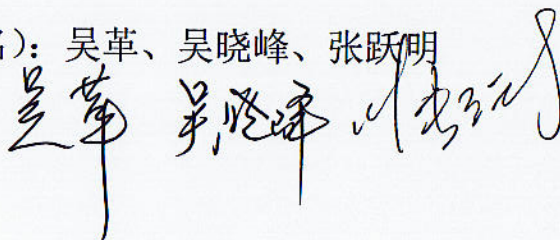 ）：吴革、吴晓峰、张跃明
吴革 吴晓峰